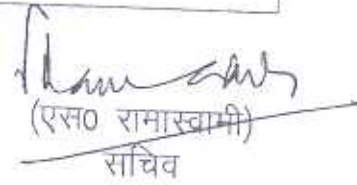 (एस० रामास्वामी)
सचिव